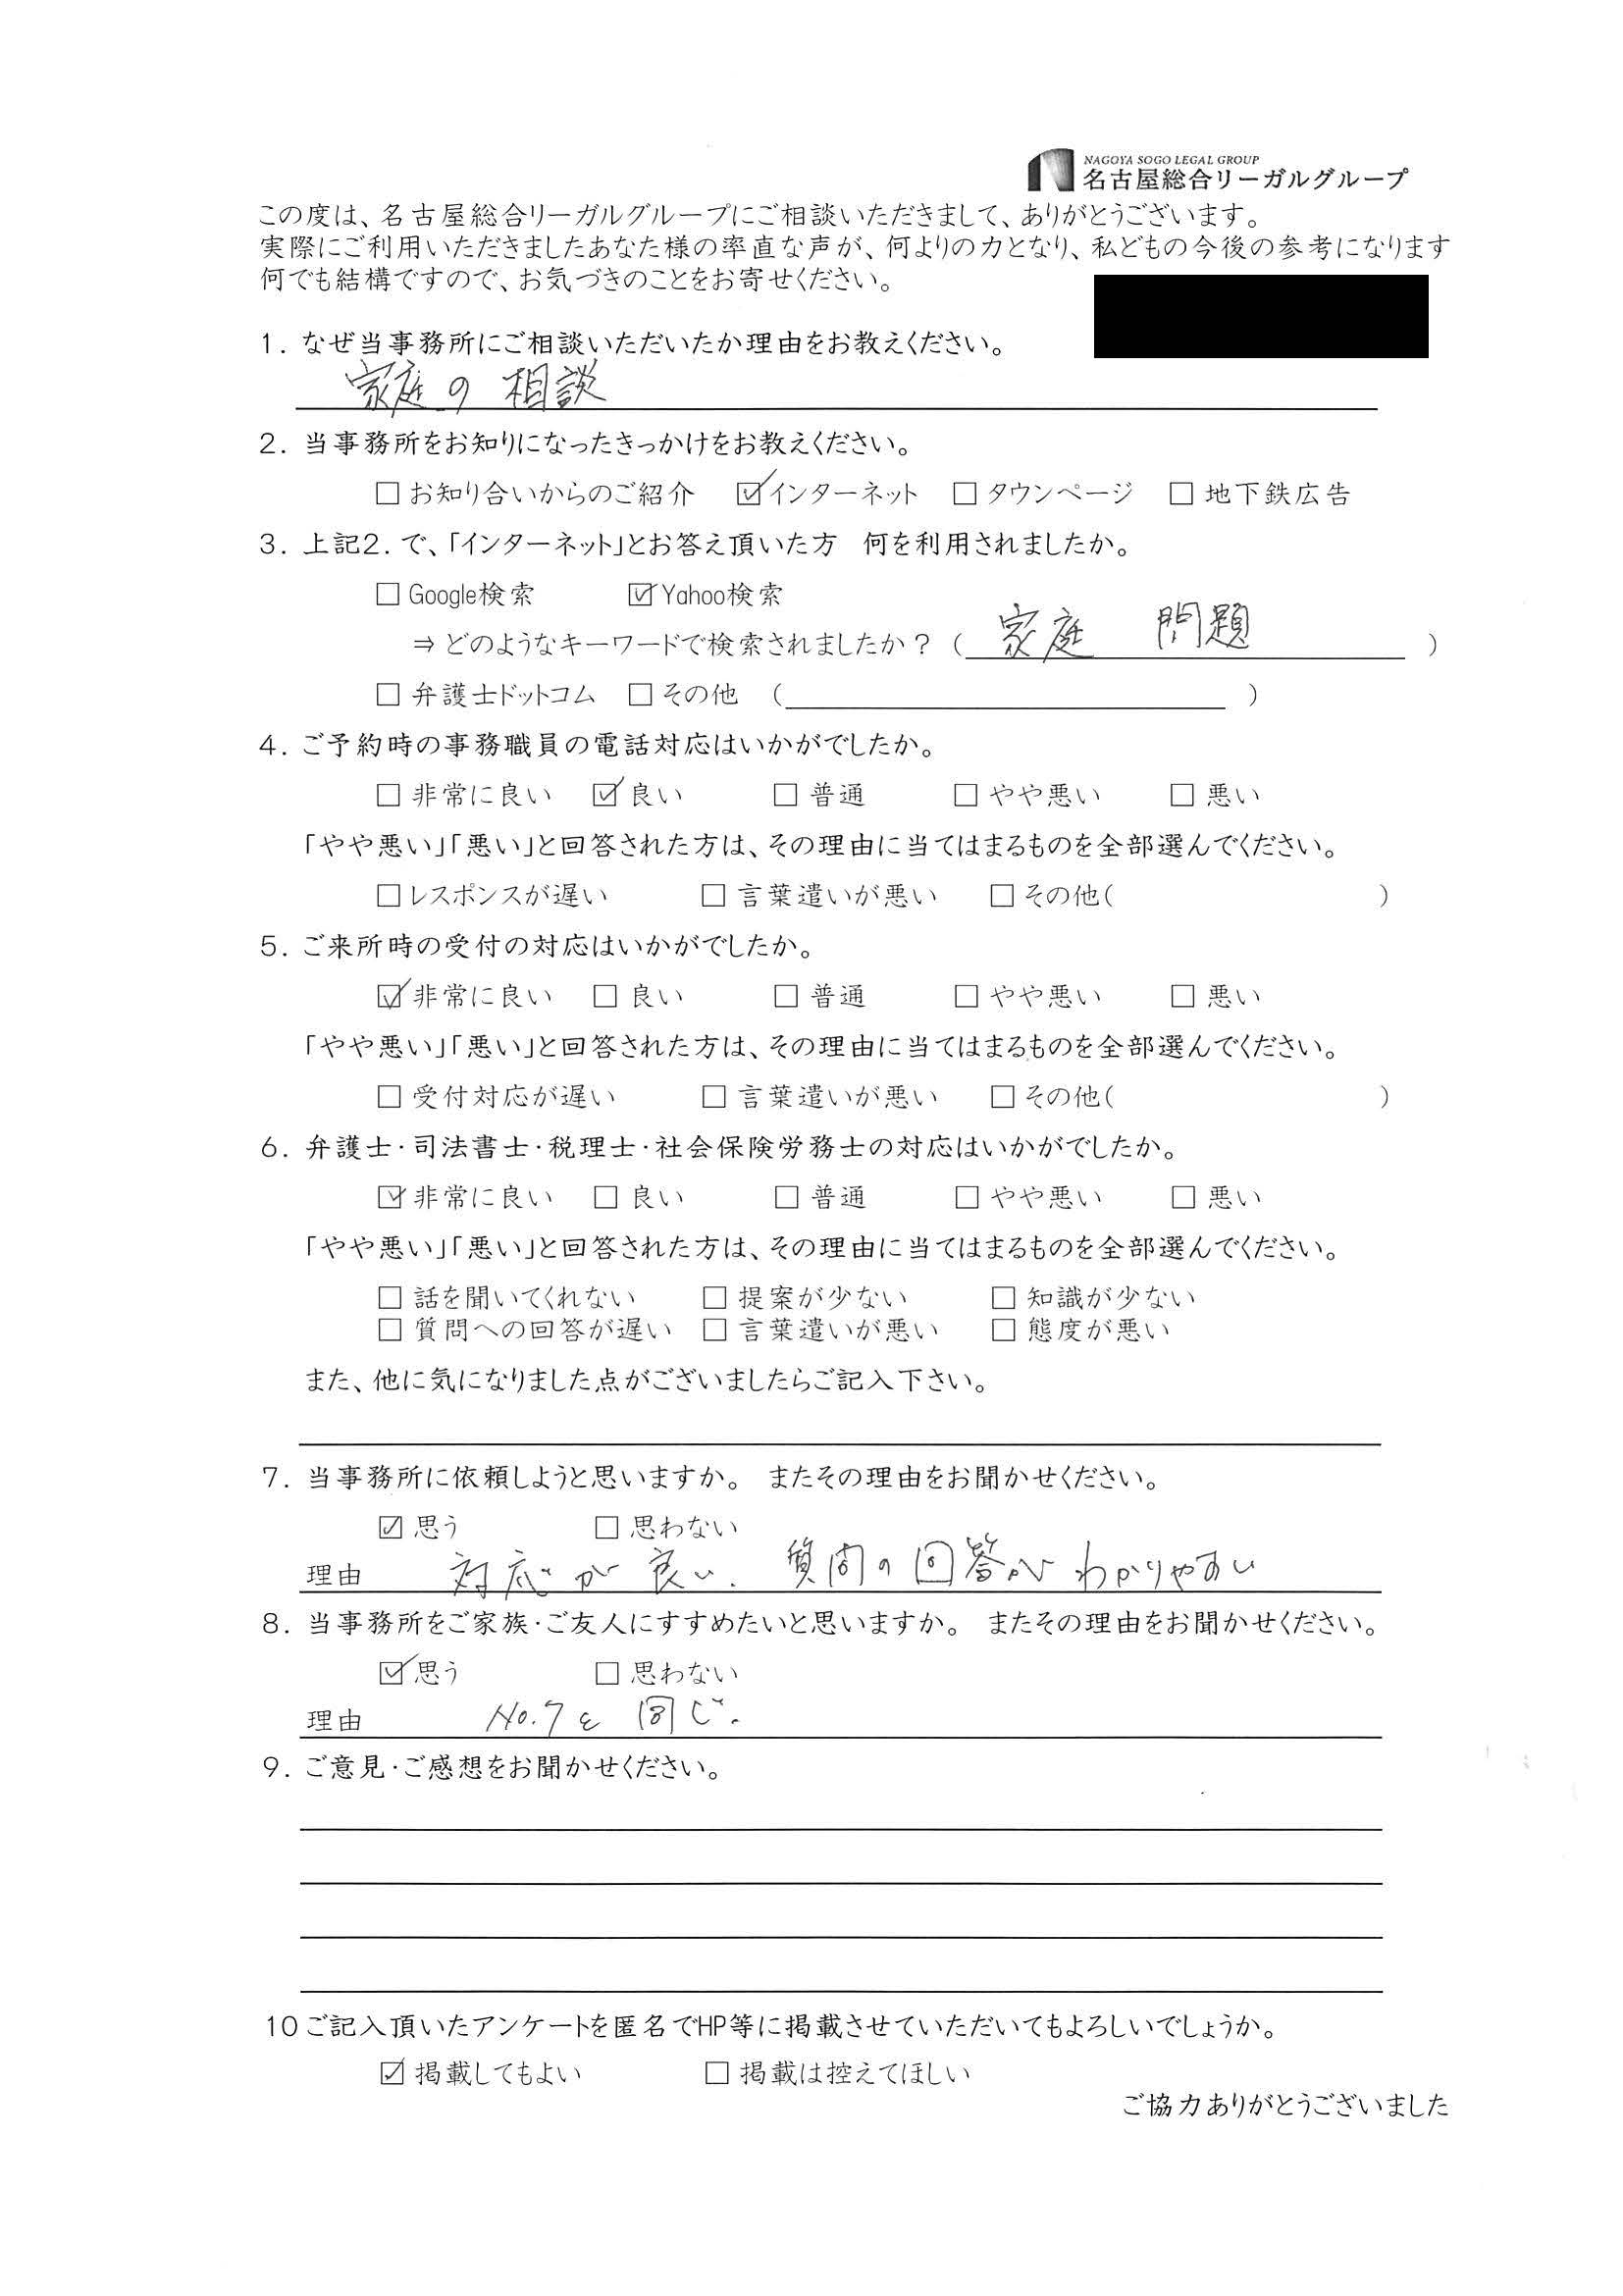 NAGOYA SOGO LEGAL GROUP
名古屋総合リーガルグループ
この度は、名古屋総合リーガルグループにご相談いただきまして、ありがとうございます。
実際にご利用いただきましたあなた様の率直な声が、何よりの力となり、私どもの今後の参考になります
何でも結構ですので、お気づきのことをお寄せください。
1. なぜ当事務所にご相談いただいたか理由をお教えください。
家庭の相談
2. 当事務所をお知りになったきっかけをお教えください。
□ お知り合いからのご紹介 ☑ インターネット □ タウンページ □ 地下鉄広告
3. 上記2. で、「インターネット」とお答え頂いた方 何を利用されましたか。
□ Google検索 ☑ Yahoo検索
⇒ どのようなキーワードで検索されましたか? ( 家庭 問題 )
□ 弁護士ドットコム □ その他 ( )
4. ご予約時の事務職員の電話対応はいかがでしたか。
□ 非常に良い ☑ 良い □ 普通 □ やや悪い □ 悪い
「やや悪い」「悪い」と回答された方は、その理由に当てはまるものを全部選んでください。
□ レスポンスが遅い □ 言葉遣いが悪い □ その他( )
5. ご来所時の受付の対応はいかがでしたか。
☑ 非常に良い □ 良い □ 普通 □ やや悪い □ 悪い
「やや悪い」「悪い」と回答された方は、その理由に当てはまるものを全部選んでください。
□ 受付対応が遅い □ 言葉遣いが悪い □ その他( )
6. 弁護士・司法書士・税理士・社会保険労務士の対応はいかがでしたか。
☑ 非常に良い □ 良い □ 普通 □ やや悪い □ 悪い
「やや悪い」「悪い」と回答された方は、その理由に当てはまるものを全部選んでください。
□ 話を聞いてくれない □ 提案が少ない □ 知識が少ない
□ 質問への回答が遅い □ 言葉遣いが悪い □ 態度が悪い
また、他に気になりました点がございましたらご記入下さい。
7. 当事務所に依頼しようと思いますか。 またその理由をお聞かせください。
☑ 思う □ 思わない
理由 対応が良い. 質問の回答がわかりやすい
8. 当事務所をご家族・ご友人にすすめたいと思いますか。 またその理由をお聞かせください。
☑ 思う □ 思わない
理由 No.7と同じ.
9. ご意見・ご感想をお聞かせください。
10 ご記入頂いたアンケートを匿名でHP等に掲載させていただいてもよろしいでしょうか。
☑ 掲載してもよい □ 掲載は控えてほしい
ご協力ありがとうございました